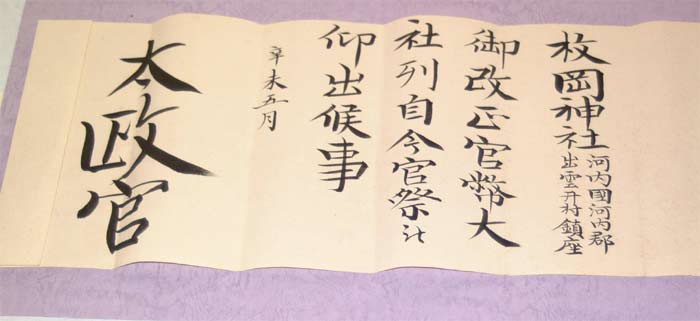 枚岡神社
河内國河内郡
出雲井村鎮座
御改正官幣大
社列自今官祭被
仰出候事
辛未五月
太政官